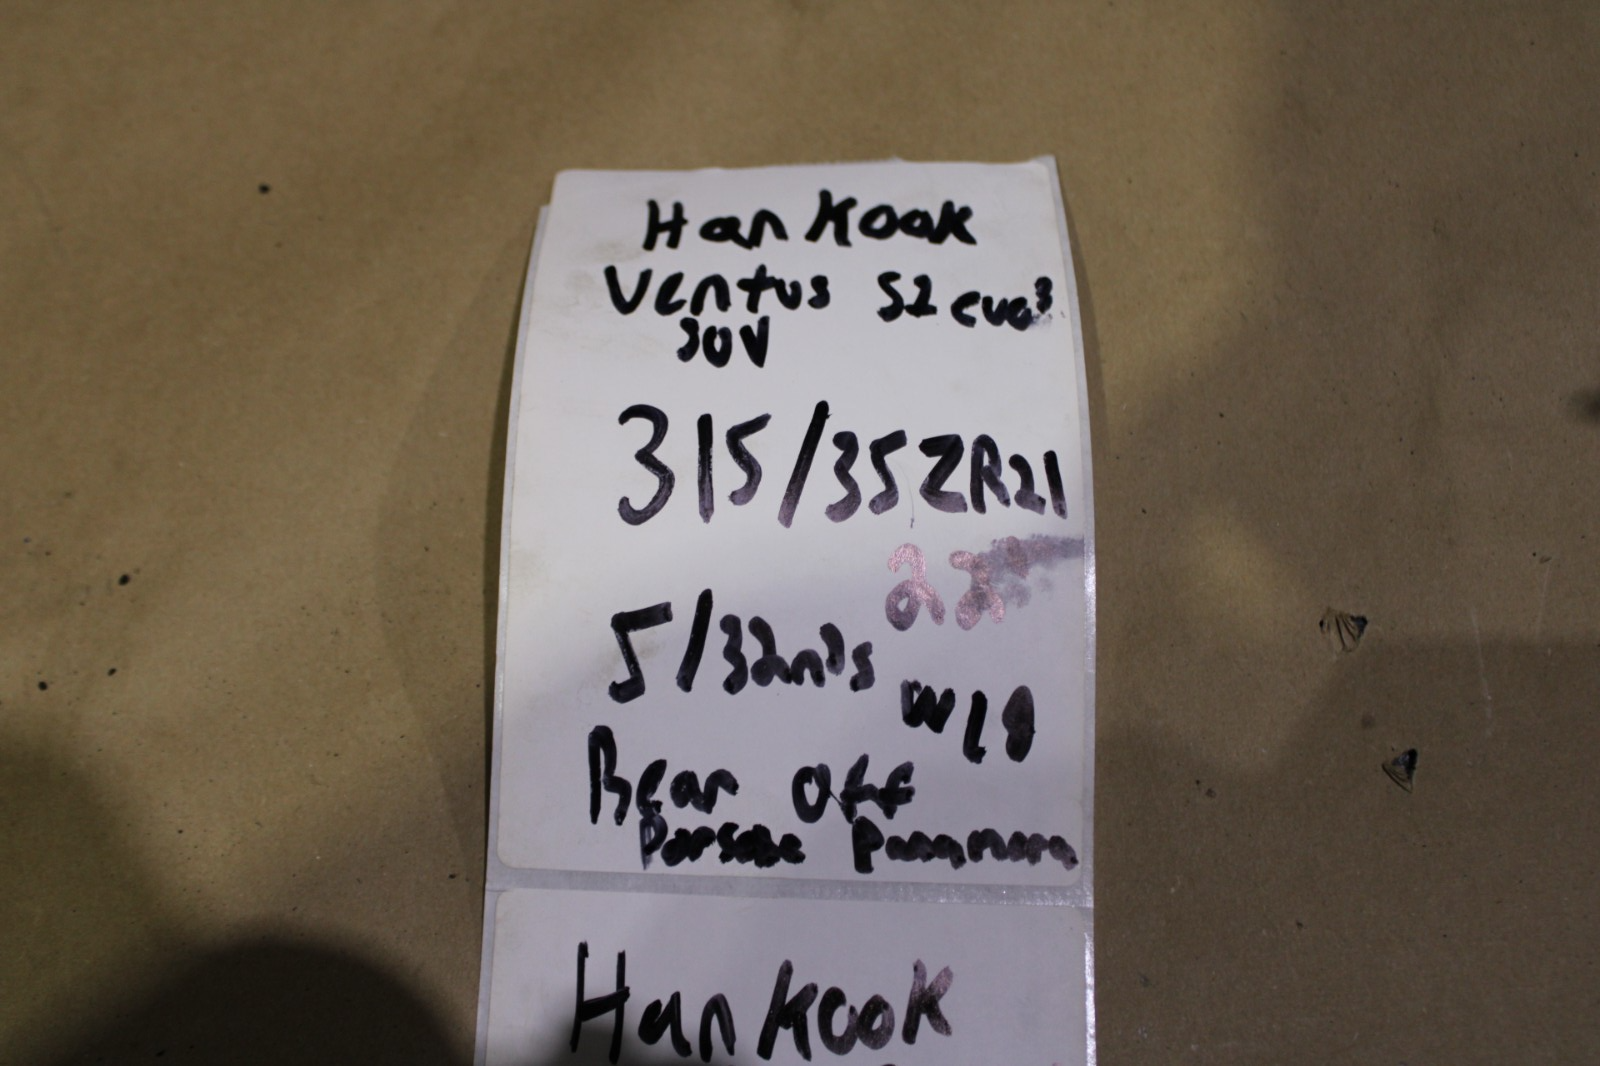 Hankook
Ventus S2 evo³
SUV
315/35ZR21
22"
5/32nds
W10
Rear Off
Porsche Panamera
Hankook